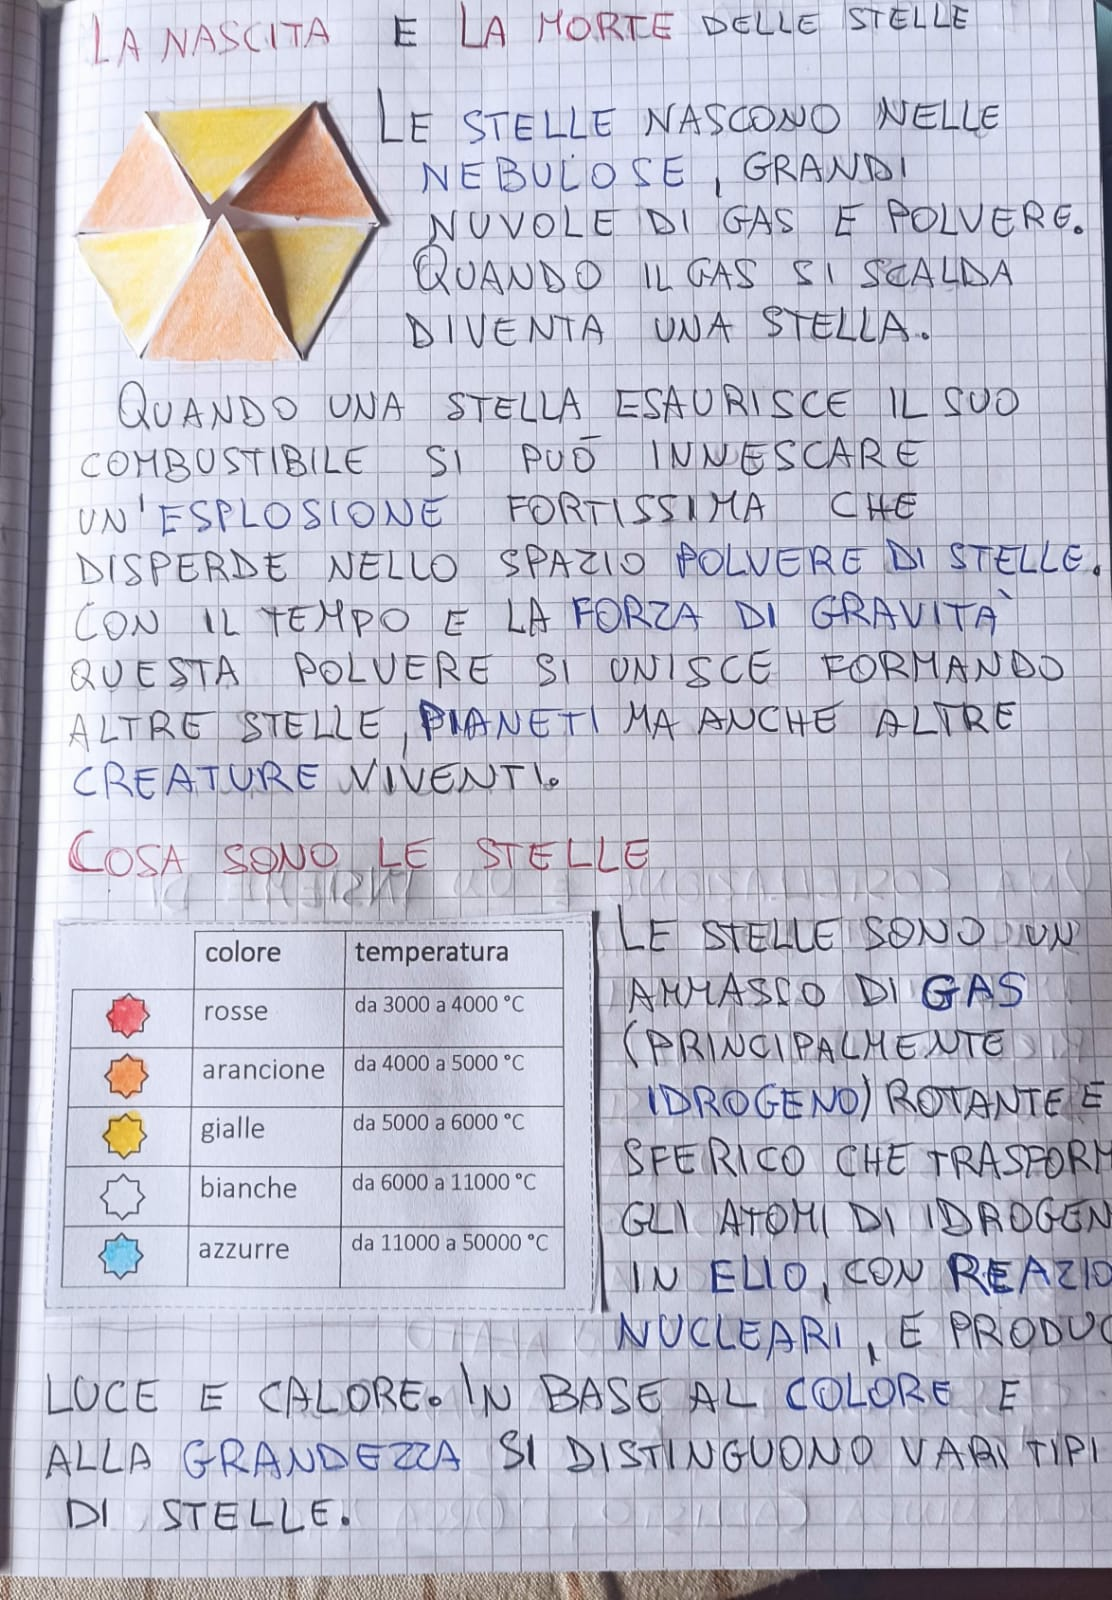 LA NASCITA E LA MORTE DELLE STELLE
LE STELLE NASCONO NELLE
NEBULOSE, GRANDI
NUVOLE DI GAS E POLVERE.
QUANDO IL GAS SI SCALDA
DIVENTA UNA STELLA.
QUANDO UNA STELLA ESAURISCE IL SUO
COMBUSTIBILE SI PUÒ INNESCARE
UN'ESPLOSIONE FORTISSIMA CHE
DISPERDE NELLO SPAZIO POLVERE DI STELLE.
CON IL TEMPO E LA FORZA DI GRAVITÀ
QUESTA POLVERE SI UNISCE FORMANDO
ALTRE STELLE, PIANETI MA ANCHE ALTRE
CREATURE VIVENTI.
COSA SONO LE STELLE
colore temperatura
rosse da 3000 a 4000 °C
arancione da 4000 a 5000 °C
gialle da 5000 a 6000 °C
bianche da 6000 a 11000 °C
azzurre da 11000 a 50000 °C
LE STELLE SONO UN
AMMASSO DI GAS
(PRINCIPALMENTE
IDROGENO) ROTANTE E
SFERICO CHE TRASFORM
GLI ATOMI DI IDROGEN
IN ELIO, CON REAZIO
NUCLEARI, E PRODUC
LUCE E CALORE. IN BASE AL COLORE E
ALLA GRANDEZZA SI DISTINGUONO VARI TIPI
DI STELLE.